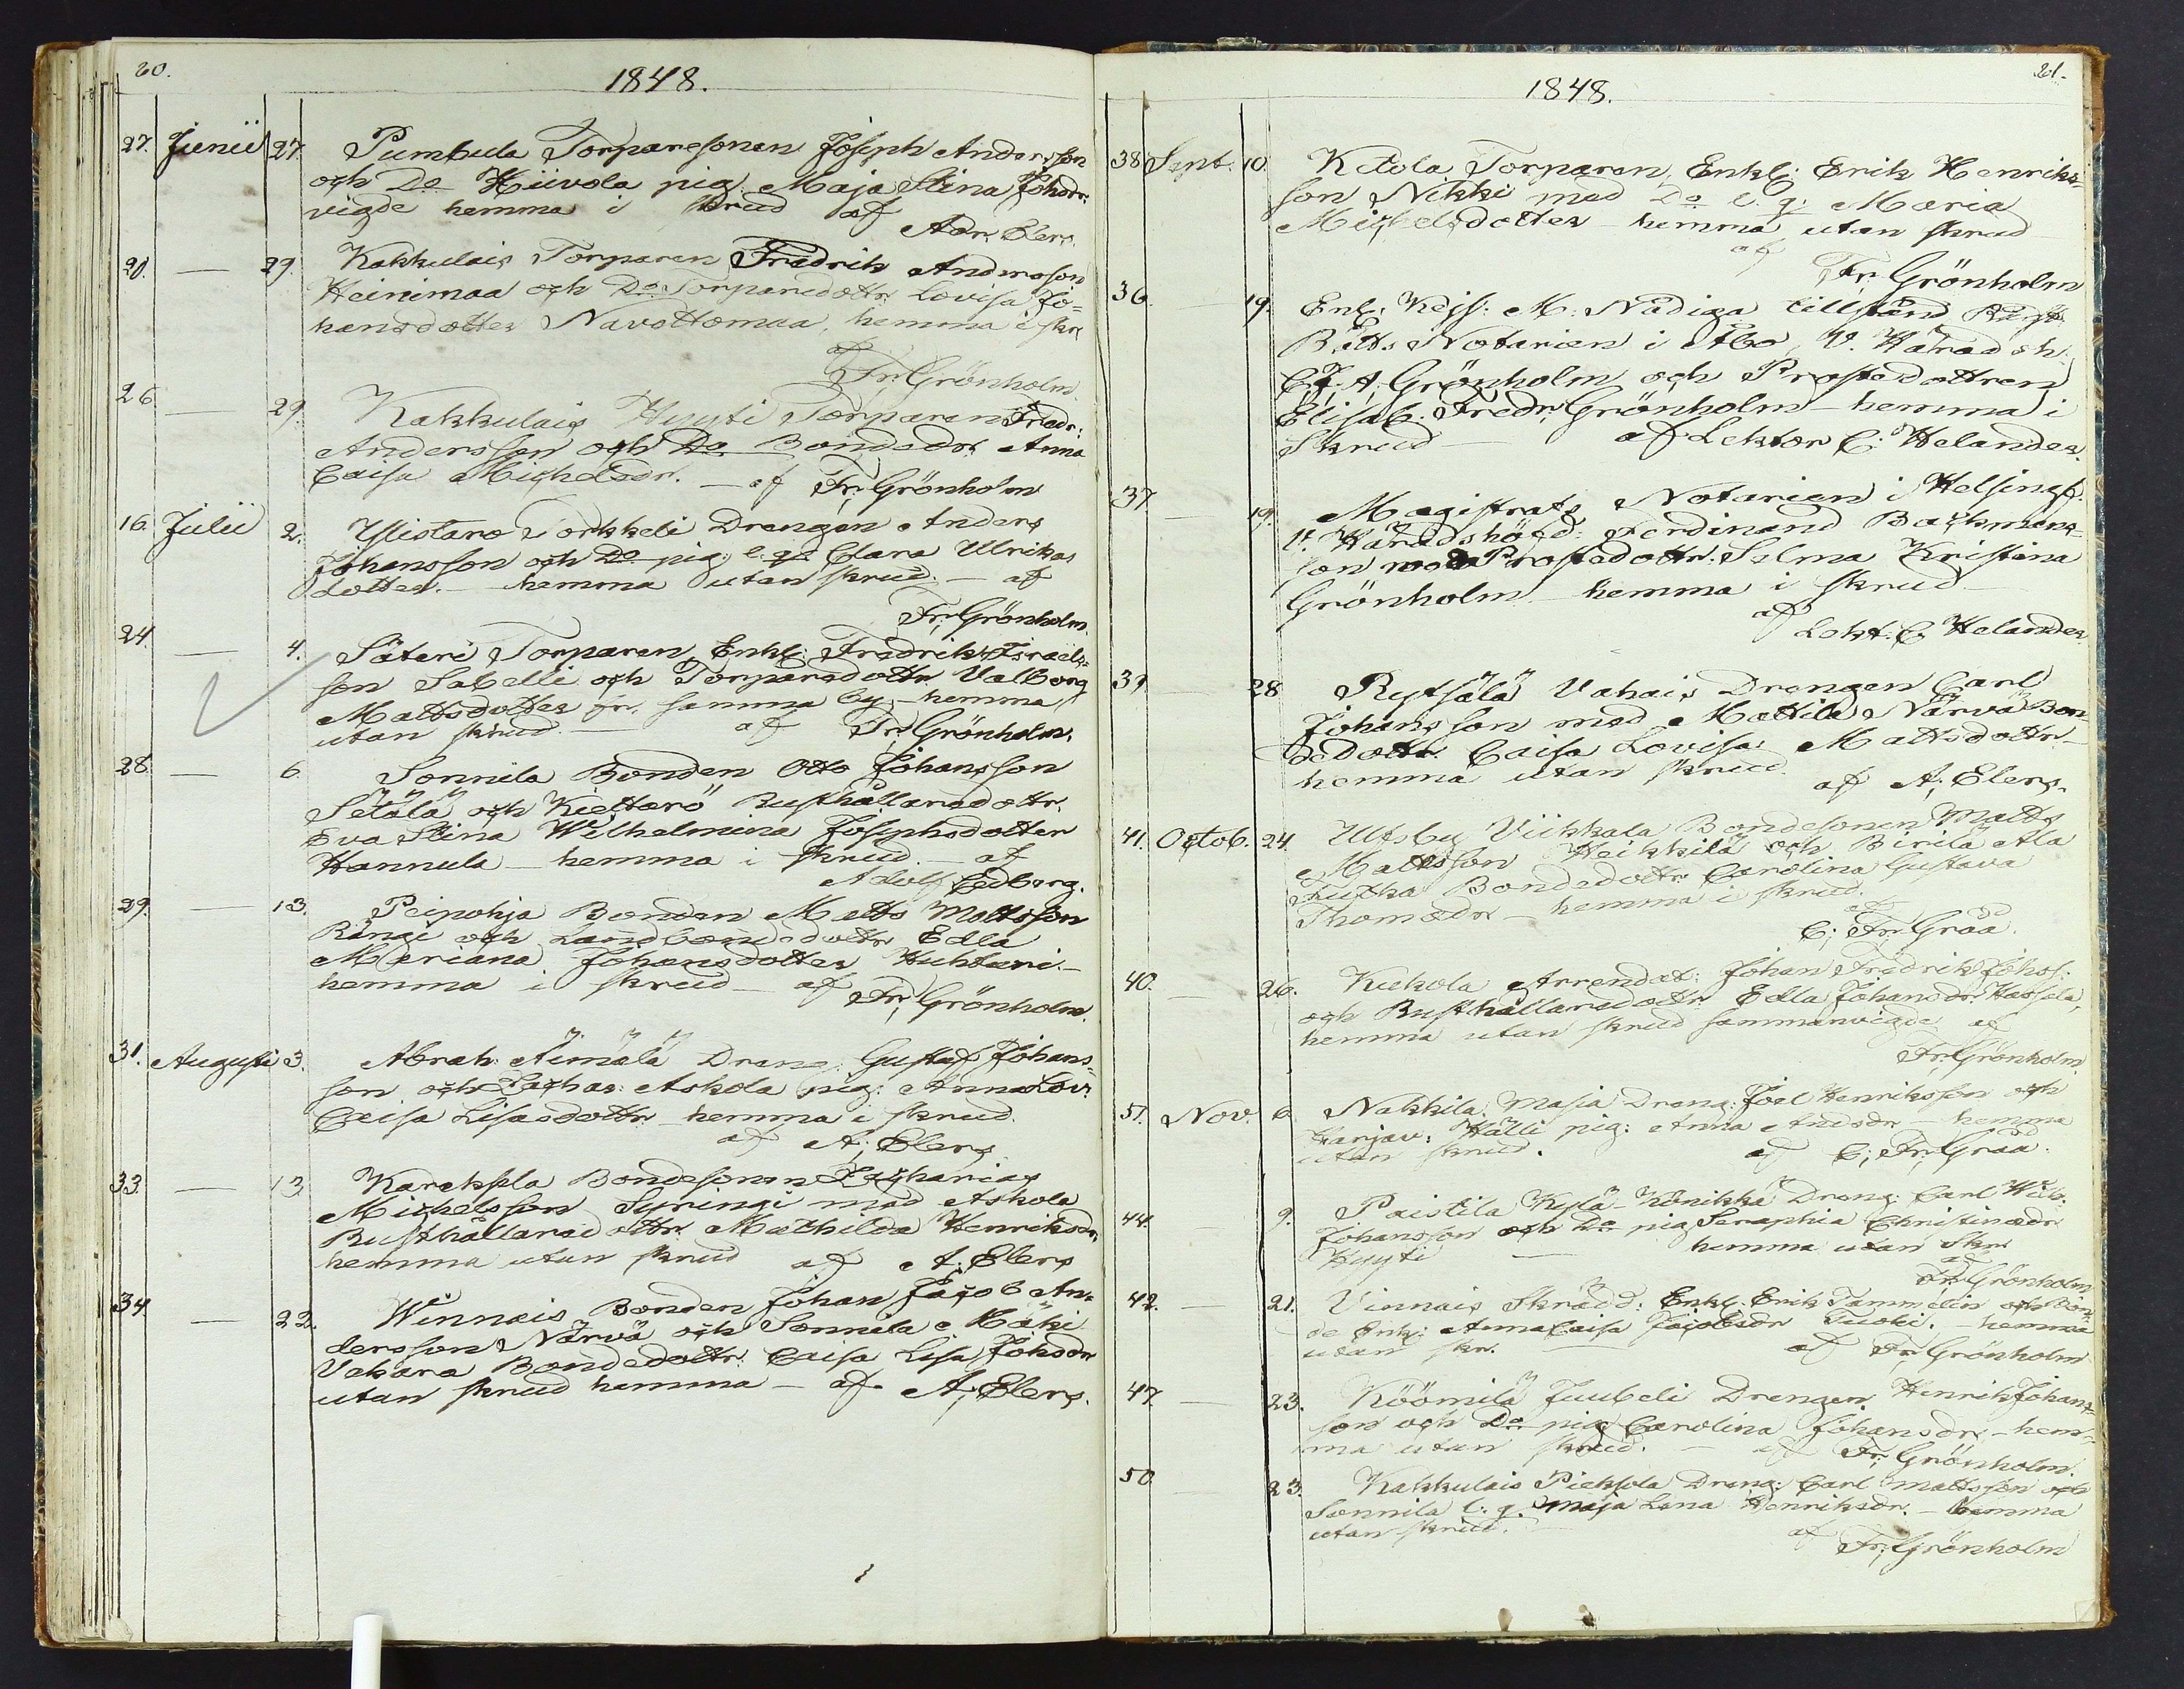 20.
1848.
27. Junii 27. Pumbula Torparesonen Joseph Andersson
och Do Hiivola pig. Maja Stina Johsdr.
vigde hemma i skrud af
Adr. Elers.
20. — 29. Kakkulais Torparen Fredrik Andersson
Heinimaa och Do Torparedottr. Lovisa Jo=
hansdotter Navottomaa, hemma i skr.
af
Fr. Grönholm.
26 — 29. Kakkulais Hyyti Torparen Fredr.
Andersson och Do Bondedr. Anna
Caisa Michelsdr. — af Fr. Grönholm
16. Julii 2. Ylistaro Torkkeli Drengen Anders
Johansson och Do pig. l. q. Clara Ulrikas
dotter. — hemma utan skrud. — af
Fr. Grönholm.
24. — 4. Säteri Torparen, Enkl. Fredrik Israels=
son Sabelli och Torparedottr. Valborg
Mattsdotter fr. samma by, — hemma
utan skrud. — af Fr. Grönholm.
28 — 6. Sonnila Bonden Otto Johansson
Setälä och Kiettarö Rusthållaredottr.
Eva Stina Wilhelmina Josephsdotter
Hannula — hemma i skrud. — af
Adolf Edberg.
29. — 13. Peipohja Bonden Matts Mattsson
Rängi och Landbondedottr. Edla
Mariana Johansdotter Huhtari. —
hemma i skrud — af
Fr. Grönholm.
31. Augusti 3. Abrah. Äimälä Dreng. Gustaf Johans=
son och Lachas: Askola pig: Anna Lov:
Caisa Lisasdottr. hemma i skrud.
af A. Elers
33. — 13. Kareksela Bondesonen Zacharias
Michelsson Syringi med Askola
Rusthållaredottr. Mathilda Henriksdr.
hemma utan skrud af A. Elers
34. — 22. Winnais Bonden Johan Jacob An=
dersson Närvä och Sonnila Mäki
Vakara Bondedottr. Caisa Lisa Johsdr
utan skrud hemma — af A. Elers.
21.
1848.
38 Sept. 10. Ketola Torparen, Enkl: Erik Henriks=
son Nikki med Do l. q. Maria
Michelsdotter — hemma utan skrud
af
Fr. Grönholm
36. 19. Enl. Kejs: M: Nådiga tillstånd
Rätts Notarien i Åbo, V. Häradsh.
C. J. A. Grönholm och Prostedottren
Elisab. Fredr. Grönholm — hemma i
Skrud — af Lektor C: Helander.
37 — 19. Magistrats Notarien i Helsingf.
V. Häradshöfd: Ferdinand Backmans=
son med Prostedottr. Selma Kristina
Grönholm — hemma i skrud —
af
Lekt. C Helander
39 — 28 Rytsälä Vahais Drengen Carl
Johansson med Mattila Närvä Bon=
dedottr. Caisa Lovisa Mattsdottr —
hemma utan skrud.
af A. Elers.
41. Octob. 24. Ulfsby Viikkala Bondesonen Matts
Mattsson Heikkilä och Birilä Ala
Bondedottr. Carolina Gustava
Thomædr — hemma i skrud.
af
C. Fr. Graa.
40. — 26. Kukola Arrendat: Johan Fredrik Johos:
och Rusthållaredottr. Edla Johansdr. Hassela,
hemma utan skrud sammanvigde af
Fr. Grönholm
51. Nov. 6. Nakkila, Masia Dreng: Joel Henriksson och
Harjav: Hälli pig: Anna Andsdr — hemma
utan skrud. af C. Fr. Graa.
44. 9. Paistila Kylä-Könikkä Dreng: Carl Wilh.
Johansson och Do pig Seraphia Christinædr
Hyyti — hemma utan Skr.
af
Fr. Grönholm
42. — 21. Vinnais Skrädd: Enkl. Erik Tammelin och Bon=
de Enk: Anna Caisa Jacobsdr Tuoki. — hemma
utan skr. — af Fr. Grönholm
47. — 23. Köömilä Juubeli Drengen Henrik Johans=
son och Do pig Carolina Johansdr — hem=
ma utan skrud. — af Fr. Grönholm.
50 23. Kakkulais Pieksola Dreng. Carl Mattsson och
Sonnila l. q. Maja Lena Henriksdr. — hemma
utan skrud. — af
Fr. Grönholm